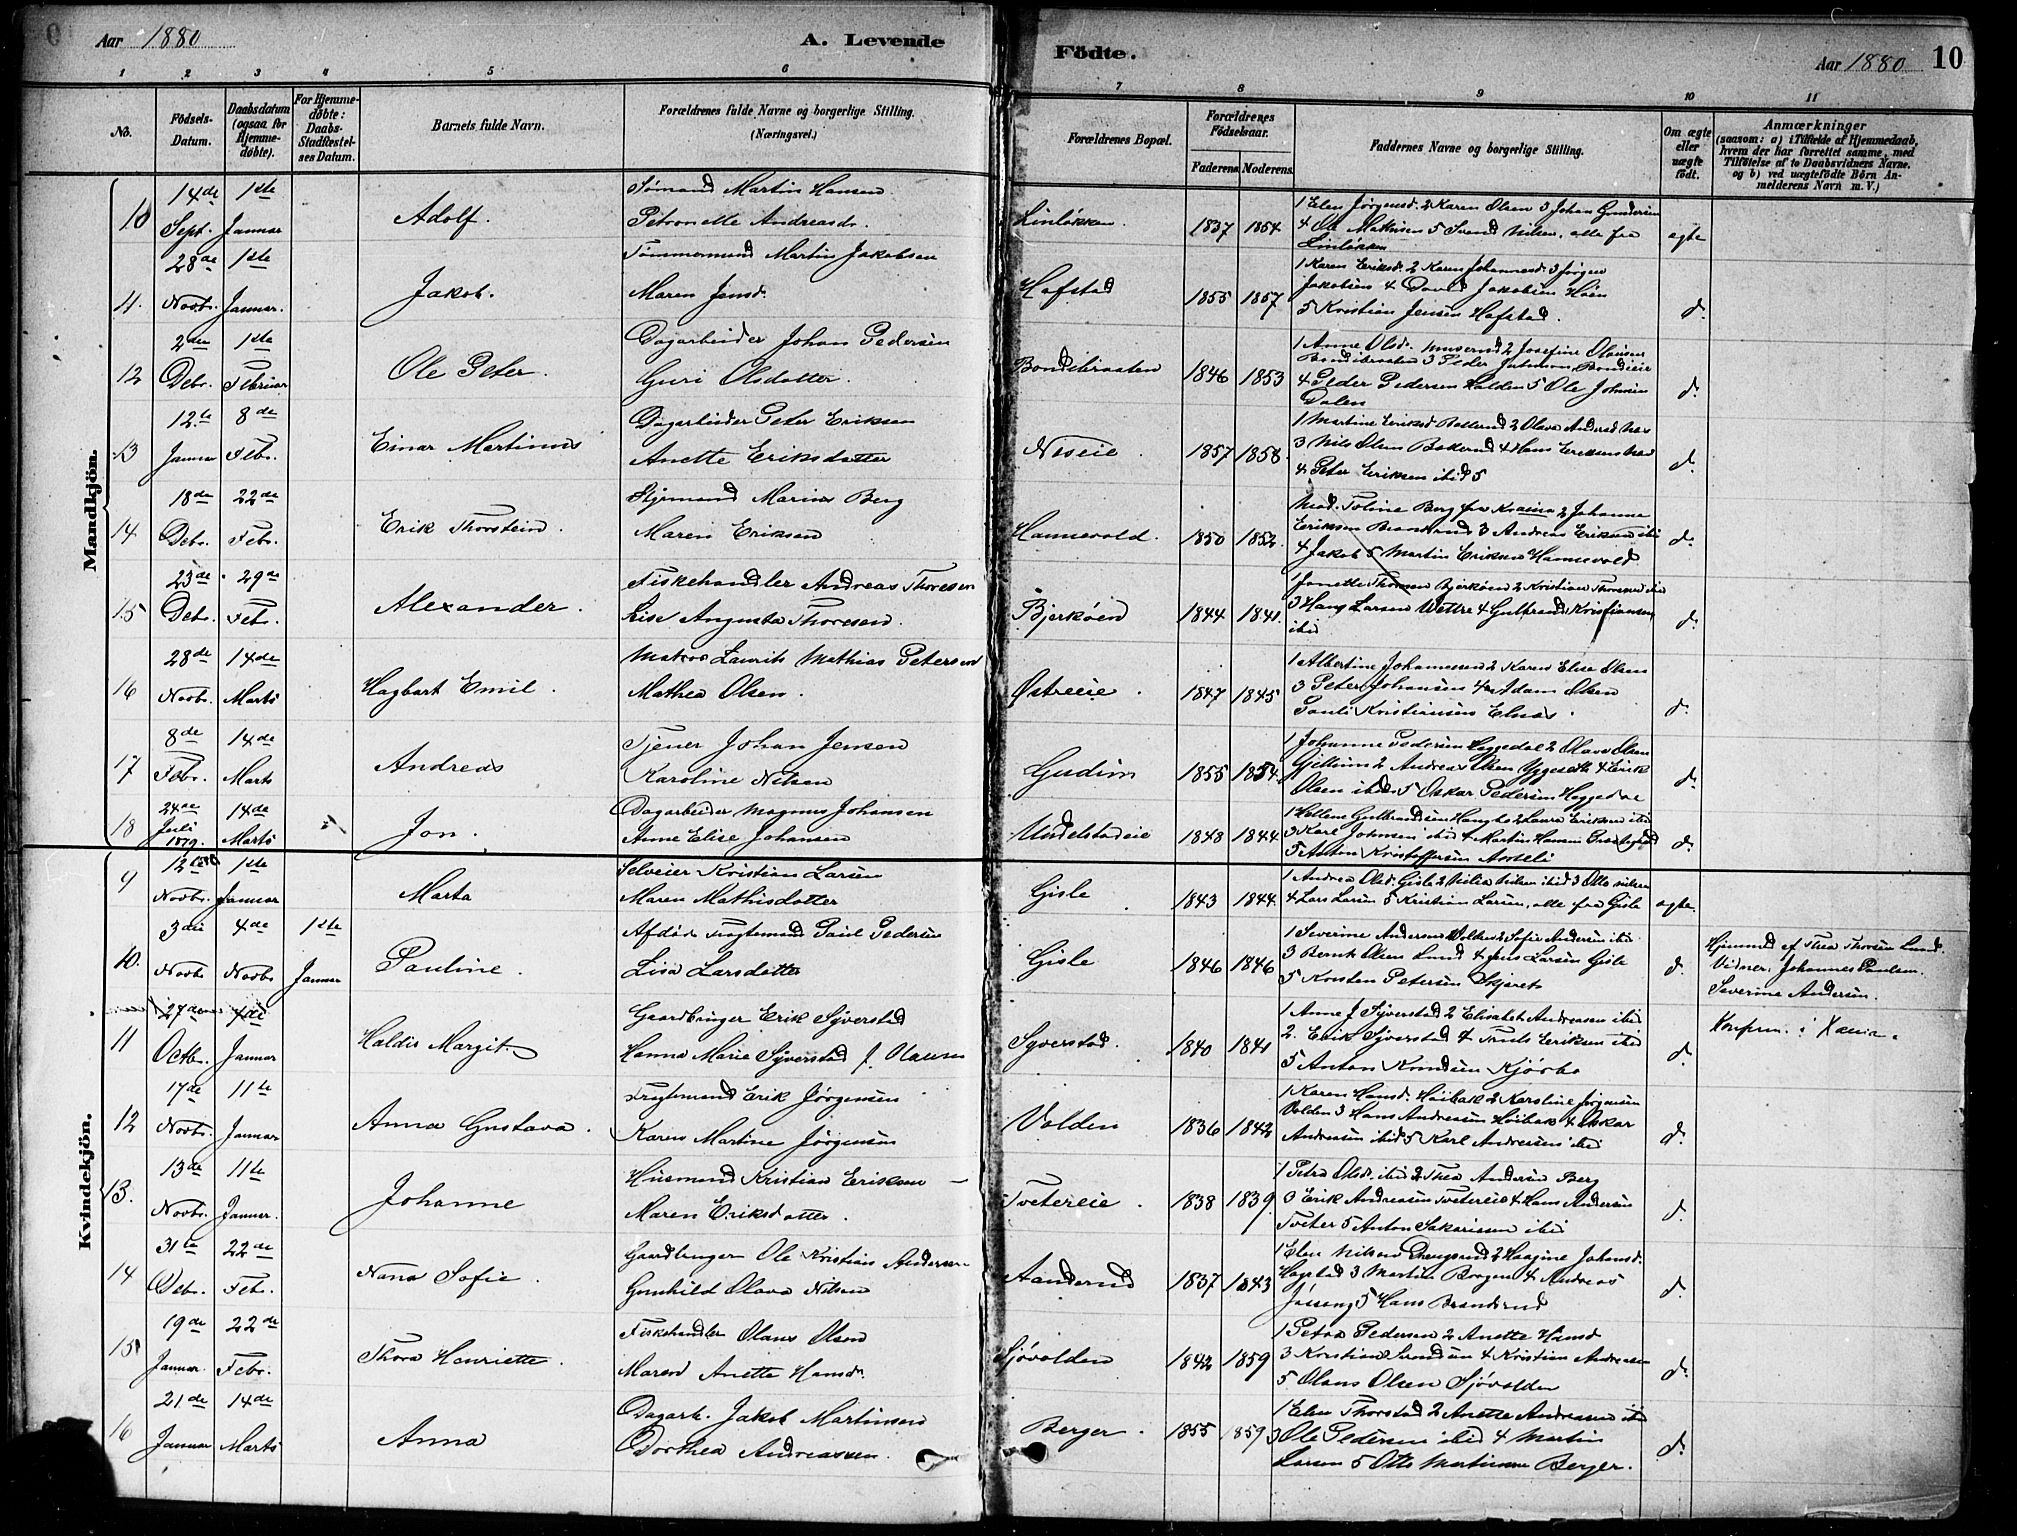 Aar 1880
A. Levende
Födte.
Aar 1880
10
1 2 3 4 5 6 7 8 9 10 11
No.
Födsels-
Datum.
Daabsdatum
(ogsaa for
Hjemme-
döbte).
For Hjemme-
döbte:
Daabs-
Stadfæstel-
ses Datum.
Barnets fulde Navn.
Forældrenes fulde Navne og borgerlige Stilling.
(Næringsvei.)
Forældrenes Bopæl.
Forældrenes
Födselsaar.
Faderens. Moderens.
Faddernes Navne og borgerlige Stilling.
Om ægte
eller
uægte
födt.
Anmærkninger
(saasom: a) i Tilfælde af Hjemmedaab,
hvem der har forrettet samme, med
Tilföielse af to Daabsvidners Navne.
og b) ved uægtefödte Börn An-
melderens Navn m. V.)
Mandkjön.
10 14de Sept. 1ste Januar
Adolf.
Sømand Martin Hansen
Petronelle Andreasd.
Linløkken 1837 1854
1 Elen Jørgensd. 2 Karen Olsen 3 Johan Gundersen
4 Ole Mathisen 5 Svend Nilsen, alle fra
Linløkken
egte
4. 28de Novbr. 1ste Januar.
Jakob.
Tømmermand Martin Jakobsen
Maren Jensd.
Hofstad 1855 1857
1 Karen Eriksd. 2 Karen Johannesd. 3 Jørgen
Jakobsen 4 David Jakobsen Høen
5 Kristian Jensen Hofstad.
d.
12 2den Debr. 1ste Februar
Ole Peter.
Dagarbeider Johan Pedersen
Guri Olsdatter.
Bondibraaten 1846 1853
1 Anne Olsd. 2 Josefine Olausen
Bondibraaten 3 Peder Bondieie
4 Peder Pedersen Halden 5 Ole Johnsen
Dalen
d.
13 12te Januar 8de Febr.
Einar Martinus
Dagarbeider Peter Eriksen
Anette Eriksdatter
Neseie. 1857 1858.
1 Martine Eriksd. 2 Olava Andersd. Næs
3 Nils Olsen 4 Hans Eriksen Næs
4 Peter Eriksen ibid 5
d.
14 18de Debr. 22de Febr.
Erik Thorstein.
Styrmand Marius Berg
Maren Eriksen
Hannevold. 1850 1852.
Mad. Toline Berg fra Krania 2 Johanne
Eriksen 3 Andreas Eriksen ibi
4 Jakob 5 Martin Eriksen Hannevold
d.
15 23de Debr. 29de Febr.
Alexander.
Fiskehandler Andreas Thoresen
Lise Augusta Thoresen.
Bjerkøen 1844 1841.
1 Janette Thoresen Bjerkøen 2 Kristian Thoresen ibid
3 Hans Larsen Wettre 4 Gulbrand Kristiansen
ibid
d.
16 28de Novbr. 14de Marts
Hagbart Emil.
Matros Laurits Mathias Petersen
Mathea Olsen.
Østreeie. 1847 1845
1 Albertine Johannesen 2 Karen Elise Olsen
3 Peter Johansen 4 Adam Olsen
Pauli Kristiansen Elnæs.
d.
17 8de Febr. 14de Marts
Andreas
Tjener Johan Jensen
Karoline Nilsen
Gudim 1855 1854.
1 Johanne Pedersen Heggedal 2 Olava Olsen
Gjellum 2 Andreas Olsen Yggeseth 4 Erik
Olsen ibid. 5 Oskar Pedersen Heggedal
d.
18 24de Juli 1879. 14de Marts
Jon.
Dagarbeider Magnus Johansen
Anne Elise Johansen
Undelstadeie 1843 1844.
1 Hellene Gulbrandsen 2 Laura Eriksen ibid
3 Karl Johnsen ibid 4 Martin Hansen
5 Anton Kristoffersen
d.
Kvindekjön.
9 12te Novbr. 1ste Januar
Marta
Selveier Kristian Larsen
Maren Mathisdatter
Gisle 1843 1844.
1 Andrea Olsd. Gisle 2 Nilia Nilsen ibid 3 Otto Nilsen
4 Lars Larsen 5 Kristian Larsen, alle fra Gisle
egte.
10. 3die Novbr. 4de Novbr. 1ste Januar
Pauline.
Afdød Fragtemand Paul Pedersen
Lisa Larsdatter
Gisle 1846 1846
1 Severine Andersen 2 Sofie Andersen ibid.
3 Bernt Olsen Lund 4 Jens Larsen Gisle
5 Korsten Petersen Skjeret
d.
Hjemmed. af Thea Thorsen Lund.
Vidner: Johannes Paulsen.
Severine Andersen.
11 27de Octbr. 4de Januar
Haldis Margit.
Gaardbruger Erik Syverstad
Hanna Marie Syverstad f. Olausen
Syverstad. 1840 1841
1 Anne J Syverstad 2 Elisabet Andreasen ibid
2. Erik Syverstad 4 Truls Eriksen ibid
5 Anton Knudsen Kjørbo
d.
Konfirm. i Xania.
12 17de Novbr. 11te Januar
Anna Gustava.
Fragtemand Erik Jørgensen
Karen Martine Jørgensen
Volden 1836 1842
1 Karen Hansd. Høibak 2 Karoline Jørgensen
Volden 3 Hans Andreasen Høibak 4 Oskar
Andreasen ibid 5 Karl Andersen ibi
d.
13. 13de Novbr. 11te Januar.
Johanne
Husmand Kristian Eriksen
Maren Eriksdatter.
Tvetereie. 1838 1839.
1 Petra Olsd. ibid 2 Thea Andersen Berg
3 Erik Andreasen Tvetereie 4 Hans Andersen
Tveter 5 Anton Sakariasen ibid
d.
14 31te Debr. 22de Febr.
Nana Sofie.
Gaardbruger Ole Kristian Andersen
Gunhild Olava Nilsen
Aanderud 1837 1843
1 Elen Nilsen Drengsrud 2 Haagine Johansd.
Hogstad 3 Martin Borgen 4 Andreas
Jøssong 5 Hans Brandrud
d.
15 19de Januar. 22de Febr.
Thora Henriette.
Fiskehandler Olaus Olsen
Maren Anette Hansd.
Sjøvolden 1842 1859
1 Petra Pedersen 2 Anette Hansd
3 Kristian Svendsen 4 Kristian Andreasen
5 Olaus Olsen Sjøvolden
d.
16 21de Januar 14de Marts
Anna
Dagarb. Jakob Martinsen
Dorthea Andreassen.
Berger. 1855 1859
1 Elen Thorstad 2 Anette Andreasen ibid
3 Ole Pedersen ibid 4 Martin
Larsen 5 Otto Martinsen Berger.
d.